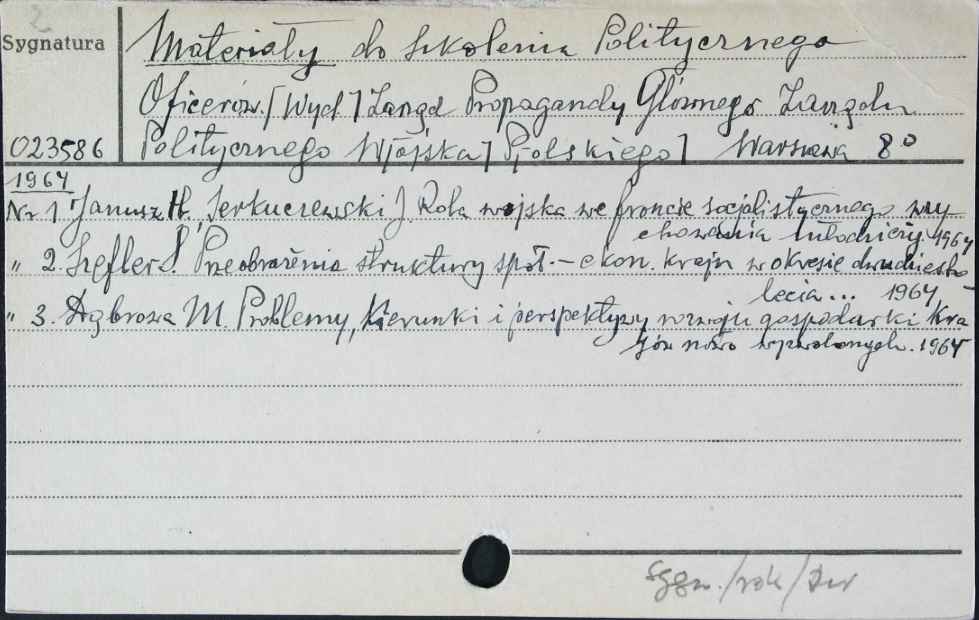 2
Sygnatura
Materiały do Szkolenia Politycznego
Oficerów. [Wyd] Zarząd Propagandy Głównego Zarządu
023586 Politycznego W[ojska] P[olskiego] Warszawa 8°
1964
Nr 1 Janusz H., Serkuczewski J Rola wojska we froncie socjalistycznego wy
chowania młodzieży. 1964
" 2. Szefler S. Przeobrażenia struktury społ. - ekon. kraju w okresie dwudziesto-
lecia... 1964
" 3. Dąbrowa M. Problemy, kierunki i perspektywy rozwoju gospodarki kra
jów nowo wyzwolonych. 1964
sygn./rok/